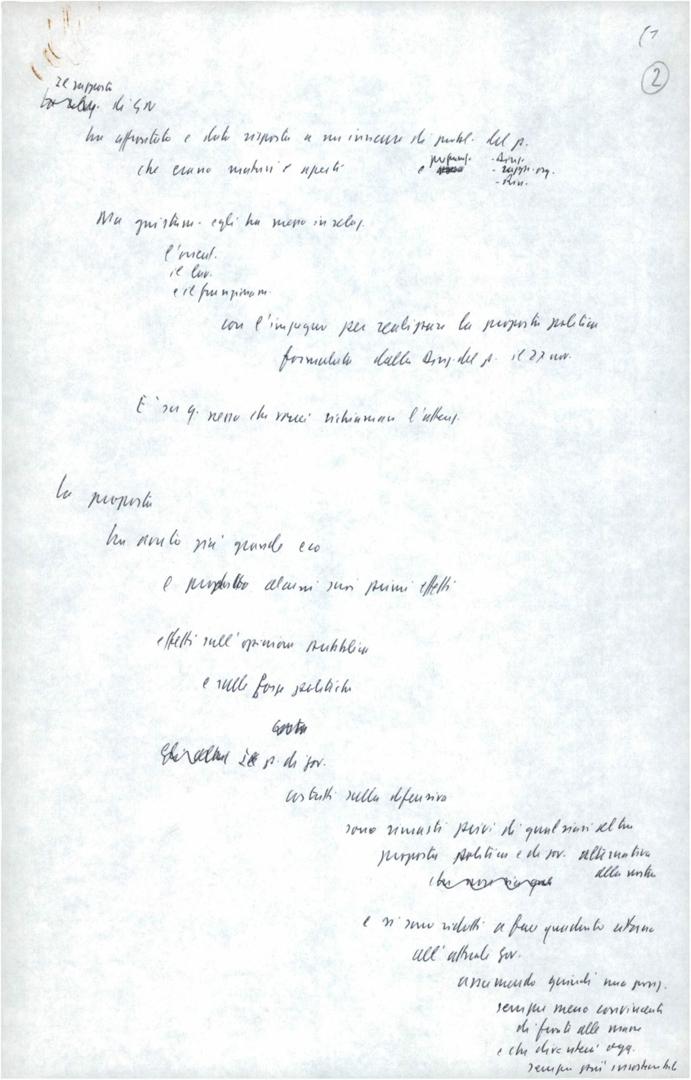 (2
Il rapporto
di GN
ha affrontato e dato risposta a un insieme di probl. del p.
che erano maturi e aperti e
- Dirig.
- rapp. org.
- Dirn.
Ma giustam. egli ha messo in relaz.
l'orient.
il lav.
e il funzionam.
con l'impegno per realizzare la proposta politica
formulata dalla Dirz. del p. il 27 nov.
E' su q. nesso che vorrei richiamare l'attenz.
La proposta
ha avuto già grande eco
e prodotto alcuni suoi primi effetti
effetti sull'opinione pubblica
e sulle forze politiche
p. di gov.
costretti sulla difensiva
sono rimasti privi di qualsiasi altra
proposta politica e di gov. alternativa
alla nostra
e si sono ridotti a fare quadrato attorno
all'attuale gov.
assumendo quindi una posiz.
sempre meno convincente
di fronte alle masse
e che diventerà ogg.
sempre più insostenibile